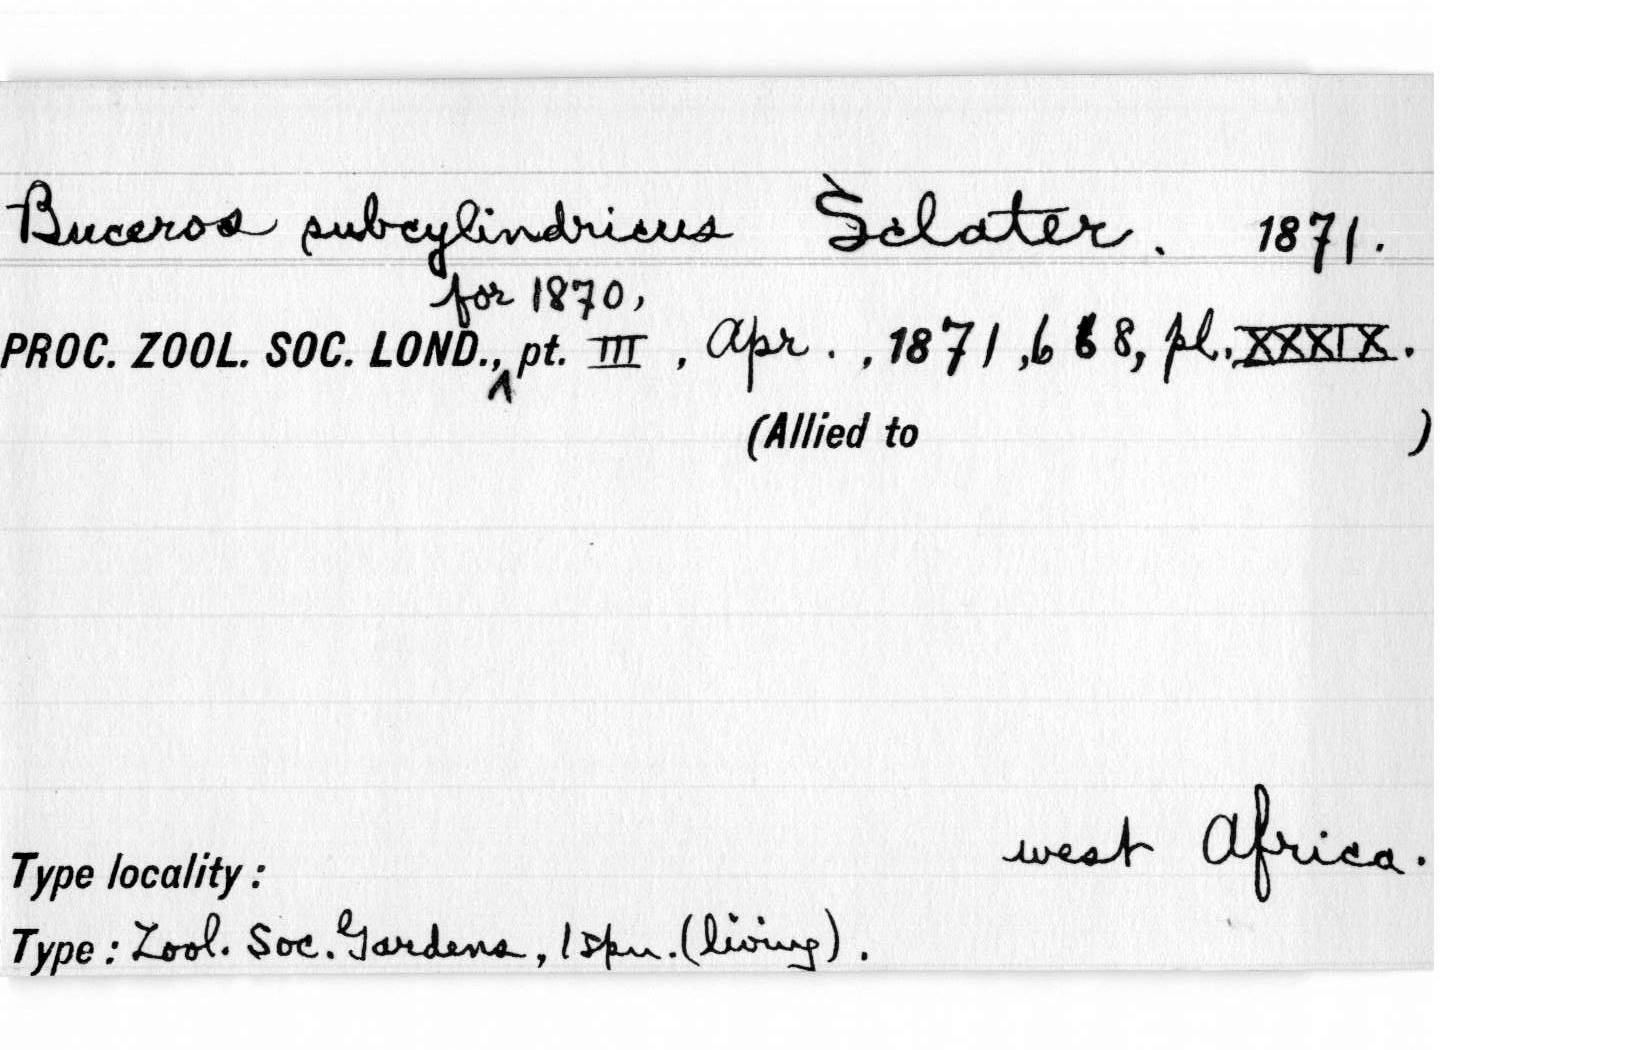 Buceros subcylindricus Sclater. 1871.
for 1870,
PROC. ZOOL. SOC. LOND., ^ pt. III, Apr., 1871, 668, pl. XXXIX.
(Allied to )
west Africa.
Type locality:
Type: Zool. Soc. Gardens, 1 spn. (living).